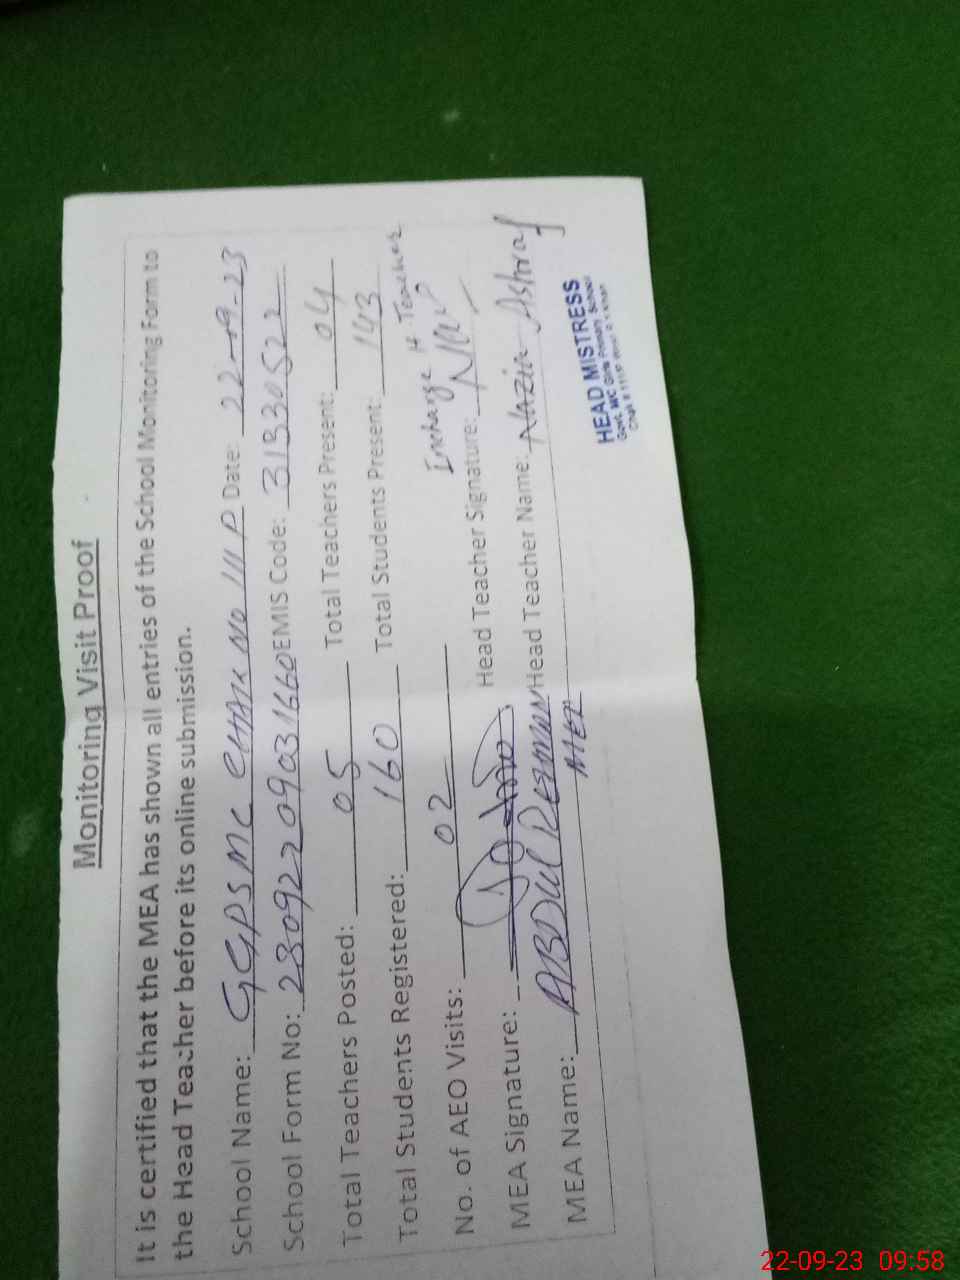 Monitoring Visit Proof
It is certified that the MEA has shown all entries of the School Monitoring Form to
the Head Teacher before its online submission.
School Name: GGPS MC CHAK NO 111 P Date: 22-09-23
School Form No: 23092209031660 EMIS Code: 31330522
Total Teachers Posted: 05 Total Teachers Present: 04
Total Students Registered: 160 Total Students Present: 143
No. of AEO Visits: 02
Incharge H. Teacher
MEA Signature: Head Teacher Signature:
MEA Name: ABDUL REHMAN Head Teacher Name: Nazia Ashraf
MEA
HEAD MISTRESS
Govt. MC Girls Primary School
Chak # 111/P
22-09-23 09:58